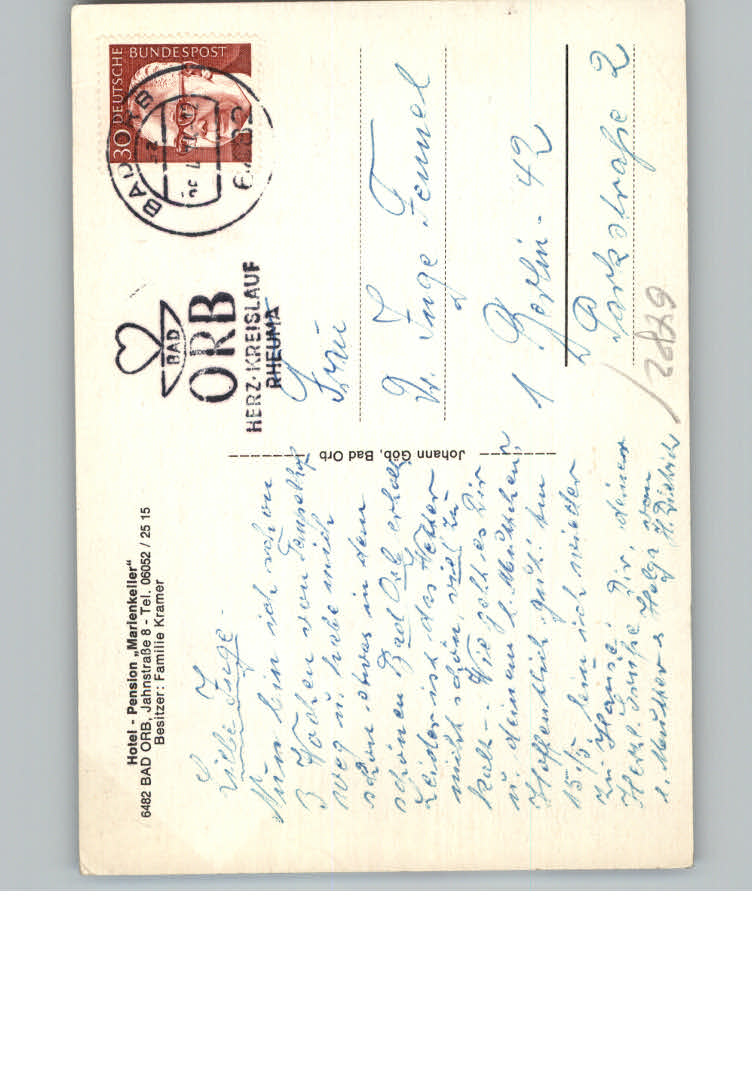 Hotel - Pension „Marienkeller"
6482 BAD ORB, Jahnstraße 8 - Tel. 06052 / 25 15
Besitzer: Familie Kramer
Liebe Inge.
Nun bin ich schon
3 Wochen von Tempelhof
weg u. habe mich
schon etwas in dem
schönen Bad Orb erholt
Leider ist das Wetter
nicht schön, viel zu
kalt -. Wie geht es Dir
u. deinem l. Muttchen,
Hoffentlich gut! Am
15./5. bin ich wieder
zu Hause!
Herzl. Grüße Dir, deiner
l. Mutter von
Johann Göb, Bad Orb
DEUTSCHE BUNDESPOST
30
BAD ORB
BAD
ORB
HERZ-KREISLAUF
RHEUMA
Frau
Inge
1 Berlin - 42
Parkstraße 2